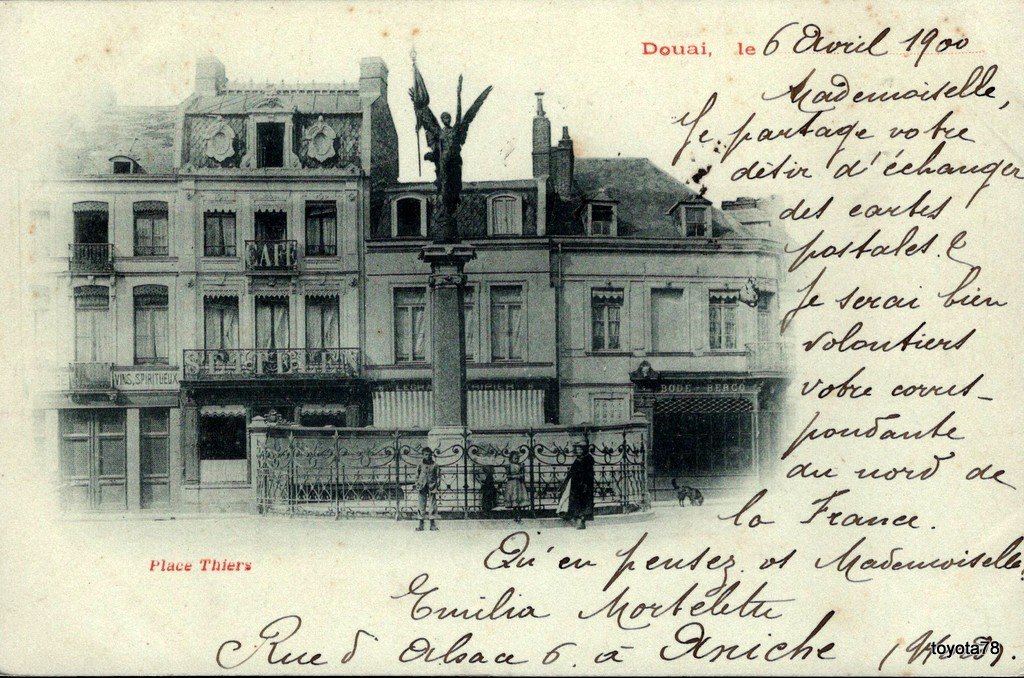 Douai, le 6 Avril 1900
Mademoiselle,
Je partage votre
désir d'échanger
des cartes
postales. &
Je serai bien
volontiers
votre corres-
pondante
du nord de
la France.
Qu'en pensez vs Mademoiselle
Emilia Mortelette
Rue d'Alsace 6. à Aniche (Nord).
CAFÉ
VINS, SPIRITUEUX
Place Thiers
toyota78